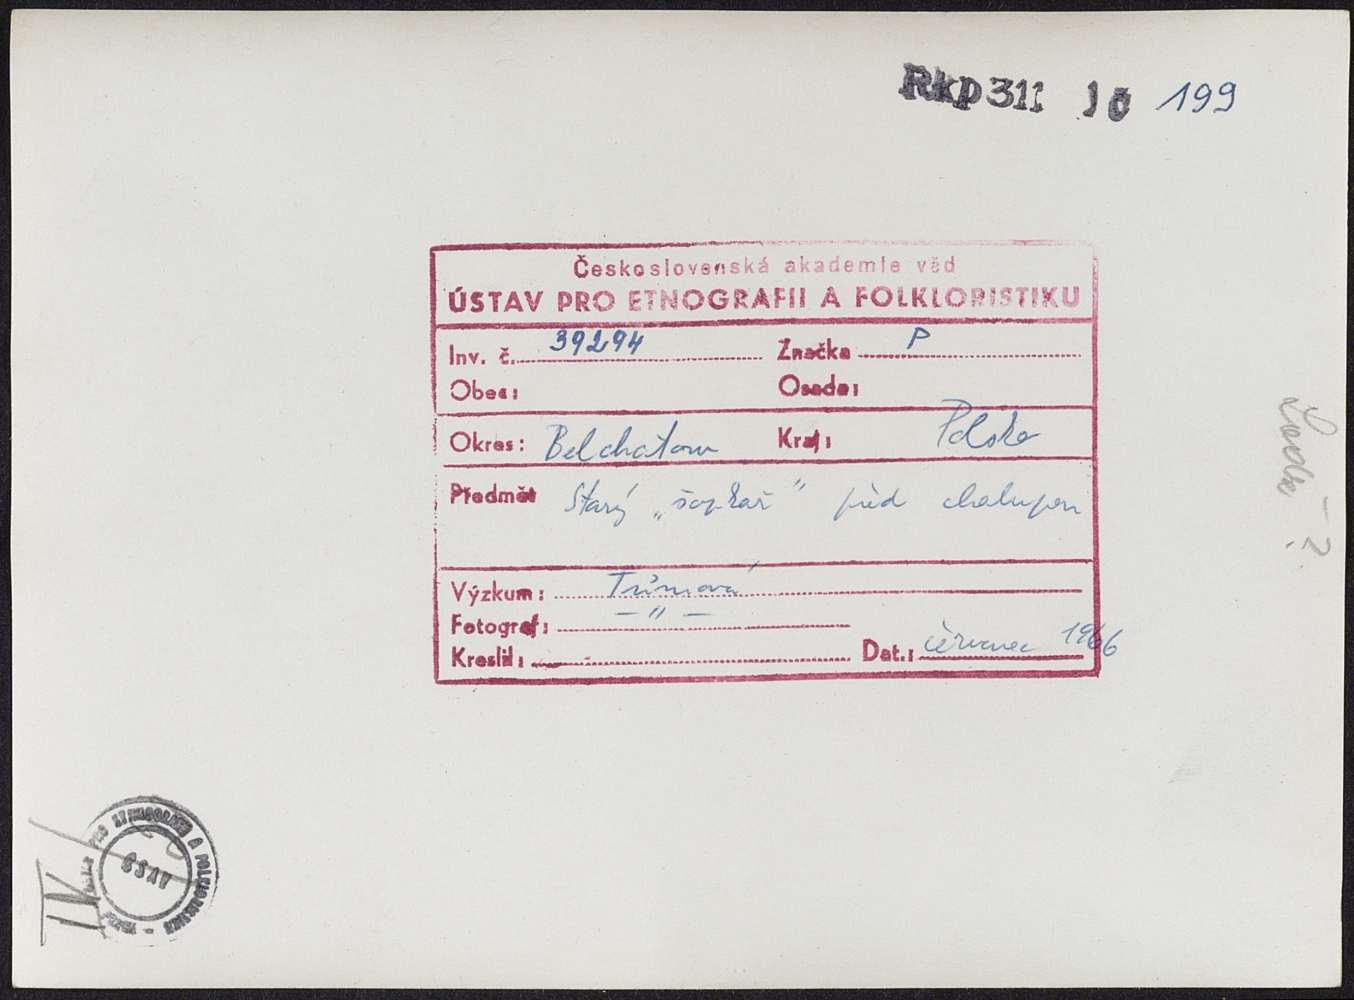 Rkp 311 IČ 199
Československá akademie věd
ÚSTAV PRO ETNOGRAFII A FOLKLORISTIKU
Inv. č. 39294 Značka P
Obec: Osada:
Okres: Belchatow Kraj: Polsko
Předmět Starý „šopkař" před chalupou
Výzkum: Tůmová
Fotograf: — " —
Kreslil: Dat.: červenec 1966
PRO ETNOGRAFII A FOLKLORISTIKU
ČSAV
IV